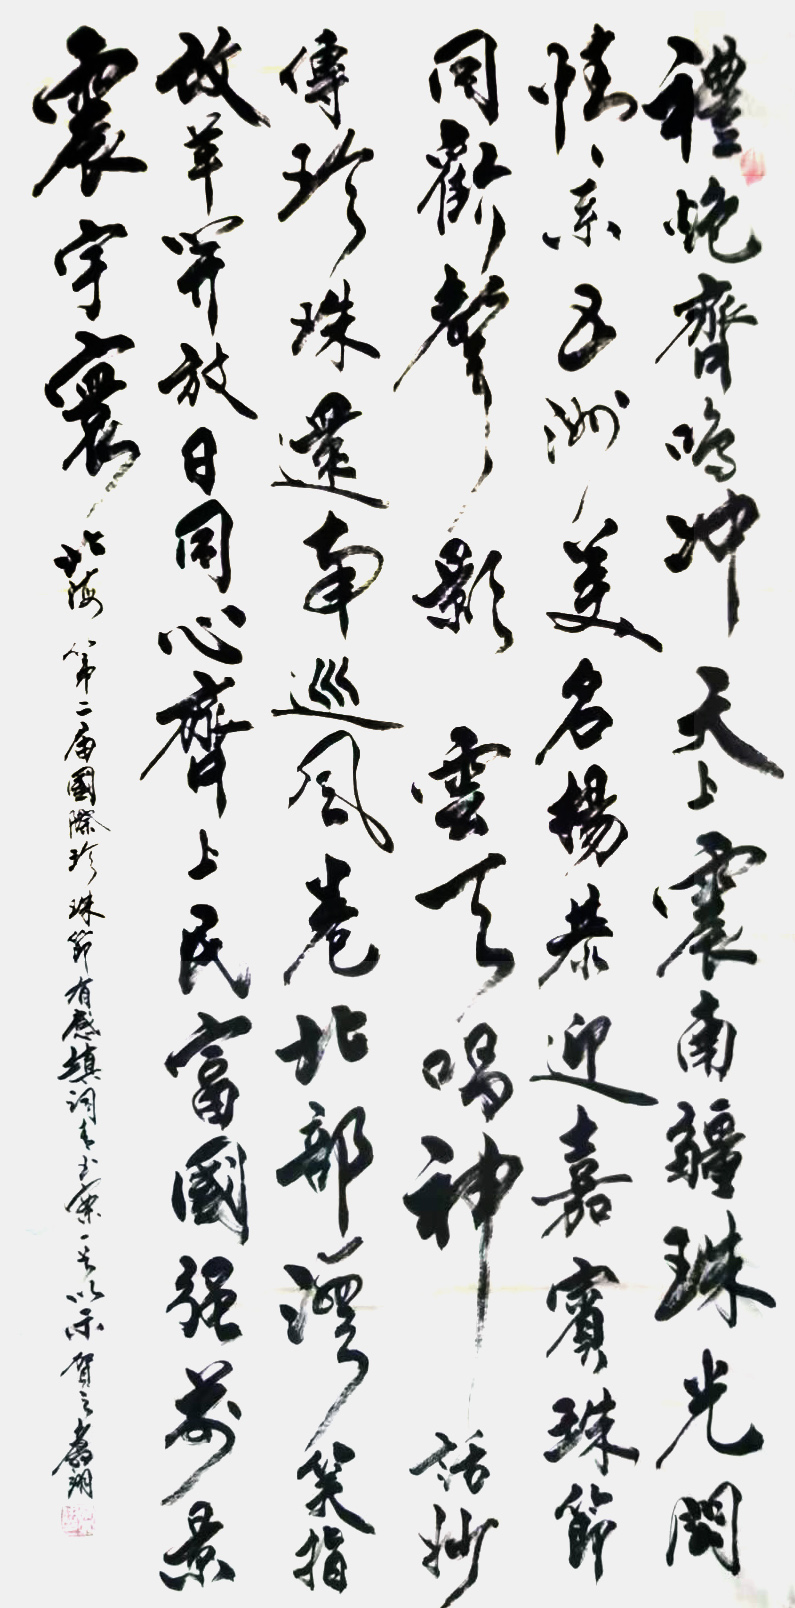 禮炮齊鳴冲天上震南疆珠光閃
情系五洲美名揚恭迎嘉賓珠節
同歡聲影雲天唱神話妙
傳珍珠還南巡風卷北部灣笑指
改革開放日同心齊上民富國强前景
震宇寰
北海第二届國際珍珠節有感填詞書以示賀之